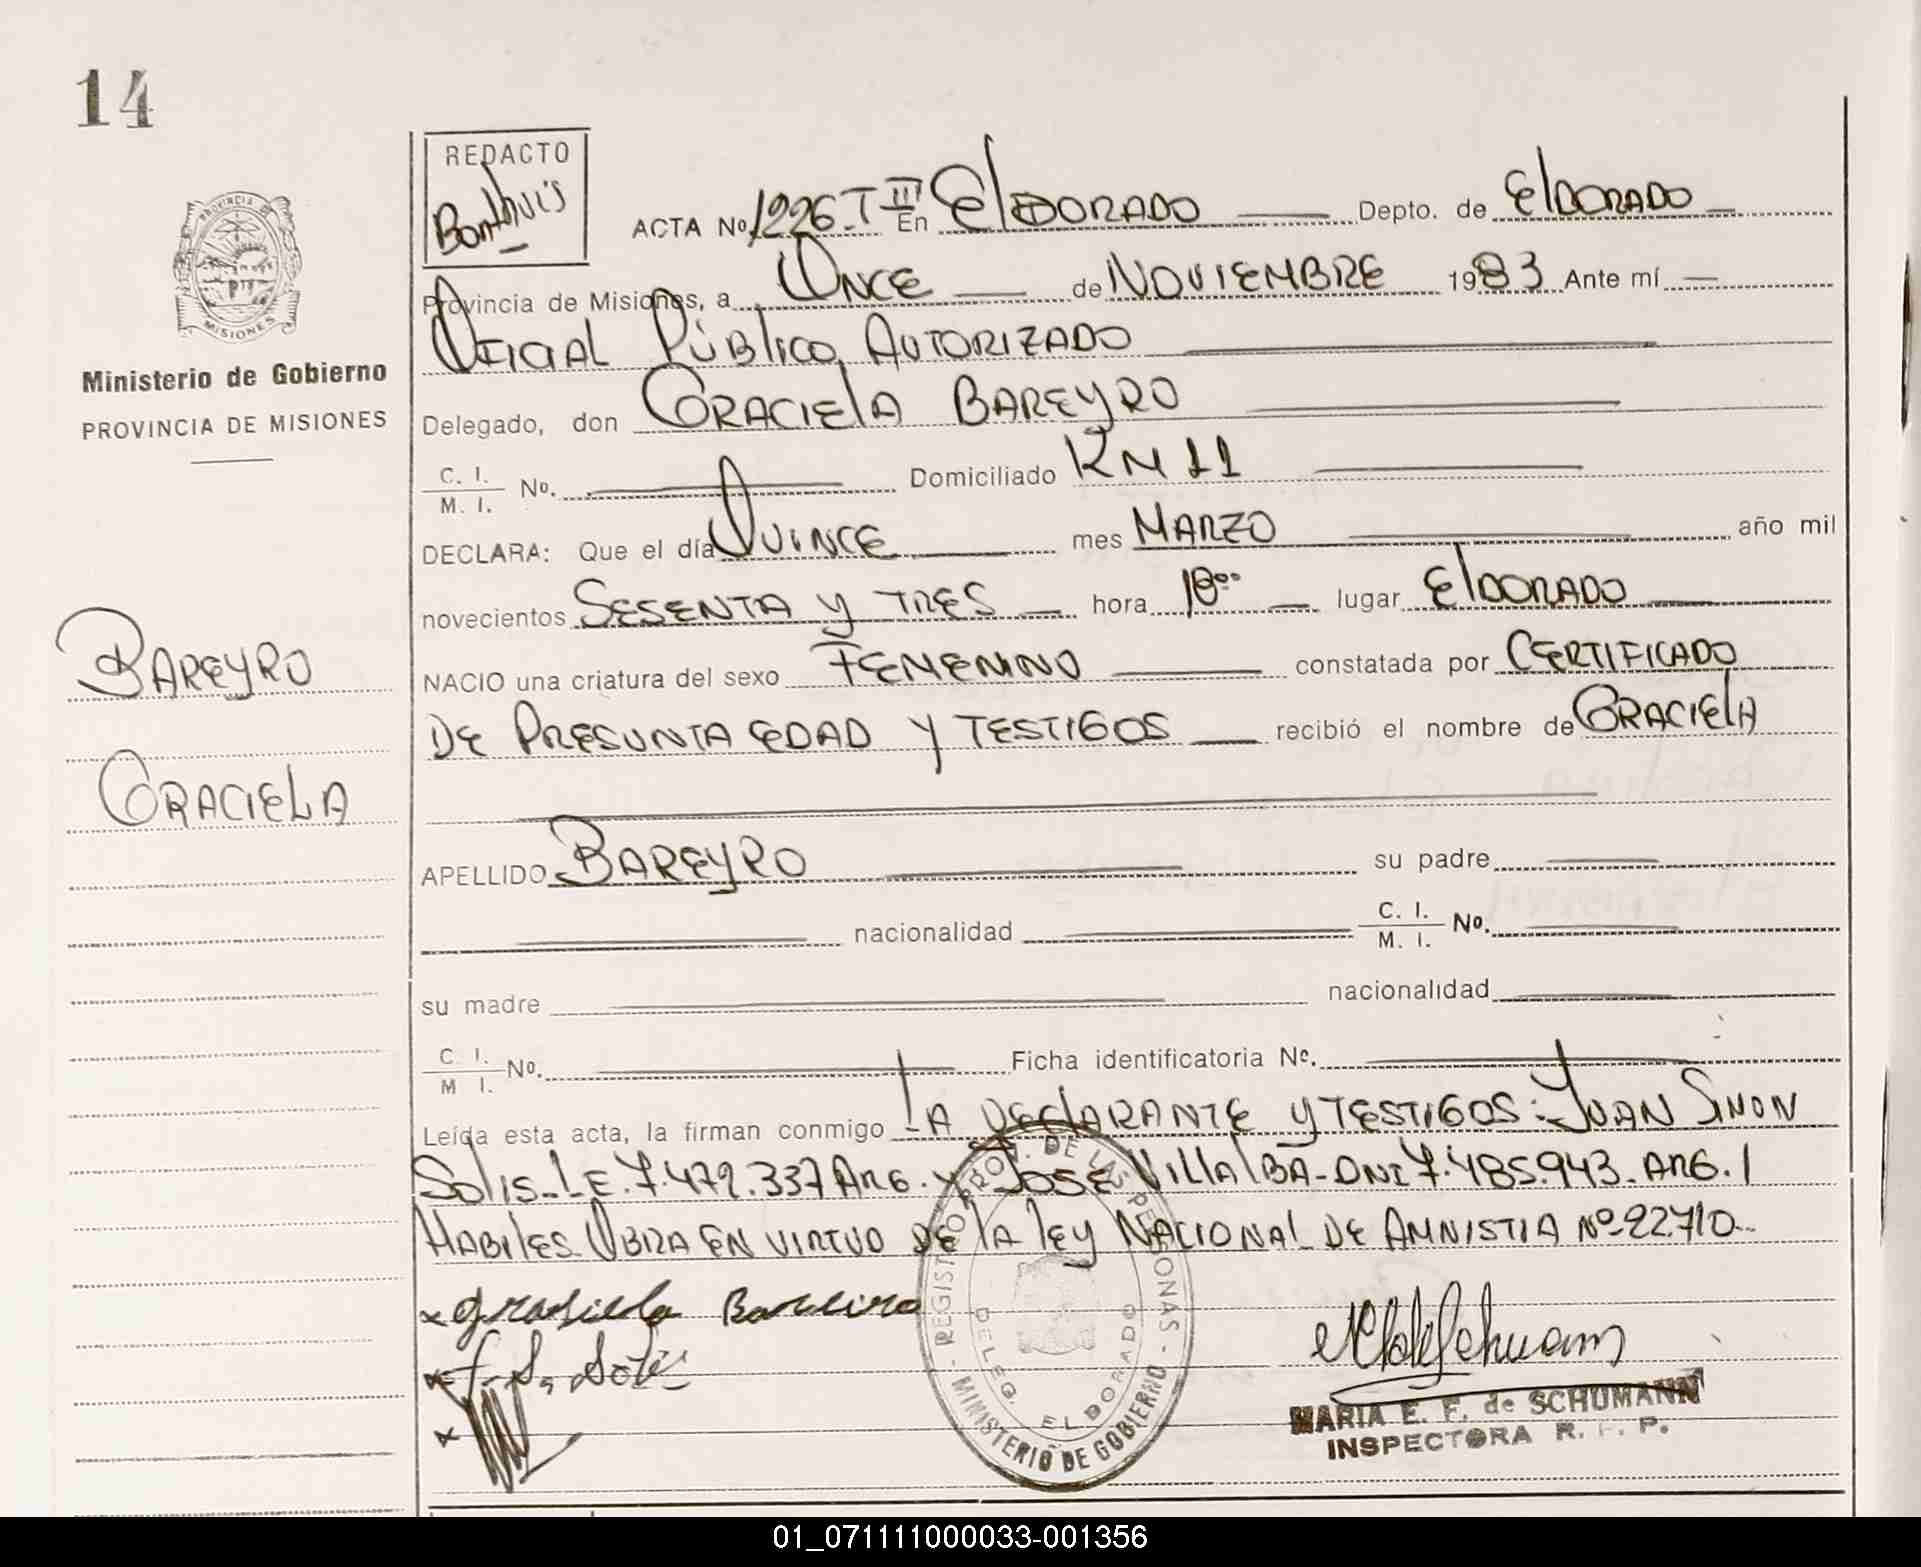 14
REDACTO
Bonthuis
ACTA No. 1226 T III En ElDORADO Depto. de ElDORADO
Provincia de Misiones, a ONCE de NOVIEMBRE 1983 Ante mí
OFICIAL PÚBlICO AUTORIZADO
Delegado, don GRACIElA BAREYRO
C. I.
M. I. No. Domiciliado KM 11
DECLARA: Que el día QUINCE mes MARZO año mil
novecientos SESENTA Y TRES hora 18°° lugar ElDORADO
NACIO una criatura del sexo FEMENINO constatada por CERTIFICADO
DE PRESUNTA EDAD Y TESTIGOS recibió el nombre de GRACIElA
APELLIDO BAREYRO su padre
nacionalidad C. I.
M. I. No.
su madre nacionalidad
C. I.
M I. No. Ficha identificatoria No.
Leída esta acta, la firman conmigo LA DEClARANTE Y TESTIGOS: JUAN SIMON
SOlIS-LE.7.479.337 ARG. Y JOSE VIllAlBA-DNI 7.485.943.ARG.
HABILES OBRA EN VIRTUD DE lA lEY NACIONAL DE AMNISTIA Nº 22710-
x Grasiela Bareiro
x J. S. Solis
x
PROVINCIA DE
MISIONES
Ministerio de Gobierno
PROVINCIA DE MISIONES
BAREYRO
GRACIELA
REGISTRO PROV. DE LAS PERSONAS
MINISTERIO DE GOBIERNO
DELEG. ELDORADO
MARIA E. F. de SCHUMANN
INSPECTORA R. P. P.
01_071111000033-001356